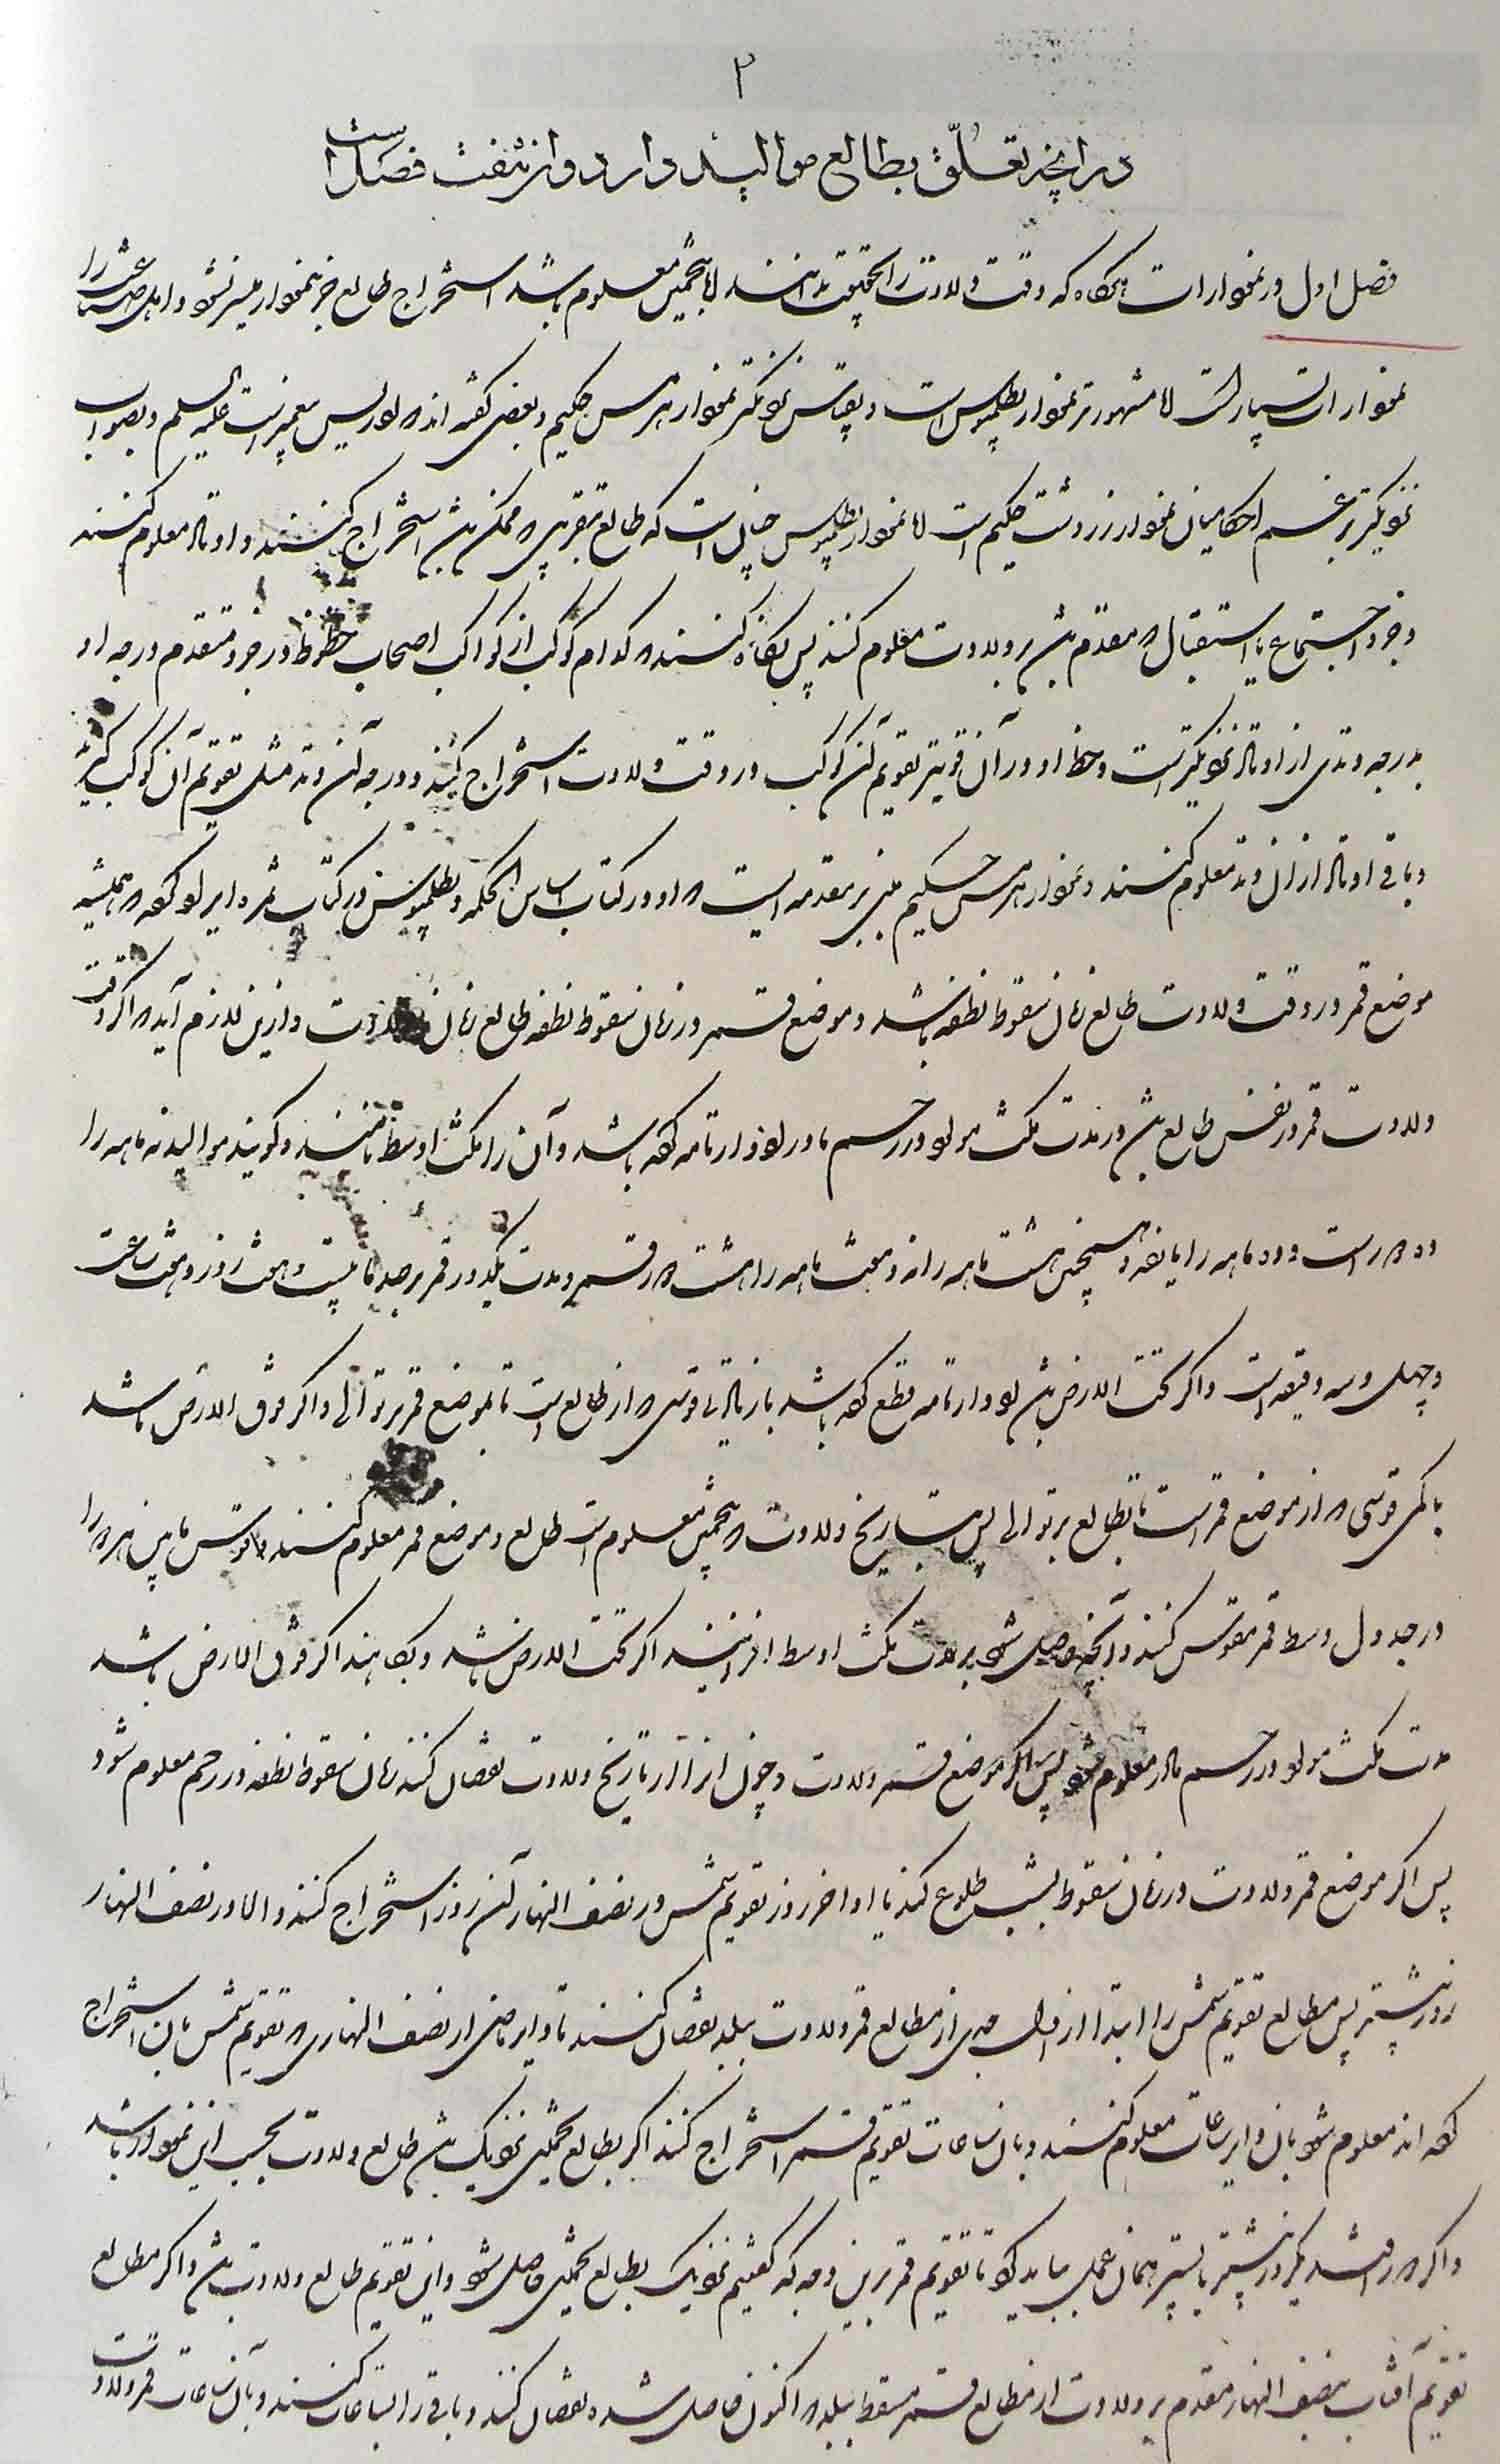 ۲
در آنچه تعلّق بطالع موالید دارد و از هفت فصل است
فصل اول در نمودارات هرگاه که وقت ولادت را بحقیقت ندانند اما بتخمین معلوم باشد استخراج طالع جز بنمودار میسر نشود و اهل صناعت را
نمودارات بسیار است اما مشهورتر نمودار بطلمیوس است و بقیاس نزدیکتر نمودار هرمس حکیم و بعضی گفته اند که ادریس پیغمبر است علیه السلم و بصواب
نزدیکتر بزعم احکامیان نمودار زردشت حکیم است اما نمودار بطلمیوس چنان است که طالع تقریبی که ممکن باشد استخراج کنند و اوتاد معلوم کنند
و جزو اجتماع یا استقبال که مقدم باشد بر ولادت معلوم کنند پس نگاه کنند که کدام کوکب از کواکب اصحاب حظوظ در جزو متقدم درجه او
بدرجه وتدی از اوتاد نزدیکتر است و حظ او در آن قویتر تقویم آن کوکب در وقت ولادت استخراج کنند و درجه آن وتد مثل تقویم آن کوکب گیرند
و باقی اوتاد از ان وتد معلوم کنند و نمودار هرمس حکیم مبنی بر مقدمه ایست که او در کتاب اساس الحکمه و بطلمیوس در کتاب ثمره ایراد کرده که همیشه
موضع قمر در وقت ولادت طالع زمان سقوط نطفه باشد و موضع قمر در زمان سقوط نطفه طالع زمان ولادت و ازین لازم آید که اگر وقت
ولادت قمر در نفس طالع باشد در مدت مکث مولود در رحم مادر ادوار تامه کرده باشد و آن را مکث اوسط نامند و گویند موالید نه ماهه را
ده دور است و ده ماهه را یازده و همچنین هشت ماهه را نه و هفت ماهه را هشت دور قمر و مدت یکدور قمر بر حد ما بیست و هفت روز و هفت ساعت
و چهل و سه دقیقه است و اگر تحت الارض باشد ادوار تامه قطع کرده باشد با زیادتی قوسی که از طالع است تا بموضع قمر بر توالی و اگر فوق الارض باشد
با کمی قوسی که از موضع قمر است تا بطالع بر توالی پس بتاریخ ولادت که بتخمین معلوم است طالع و موضع قمر معلوم کنند و قوس مابین هر دو را
در جدول وسط قمر مقوس کنند و آنچه حاصل شود بر مدت مکث اوسط افزایند اگر تحت الارض باشد و بکاهند اگر فوق الارض باشد
مدت مکث مولود در رحم مادر معلوم شود پس اگر موضع قمر ولادت و چون انرا از تاریخ ولادت نقصان کنند زمان سقوط نطفه در رحم معلوم شود
پس اگر موضع قمر ولادت در زمان سقوط بشب طلوع کند یا اواخر روز تقویم شمس در نصف النهار آن روز استخراج کنند و الا در نصف النهار
روز پیشتر پس مطالع تقویم شمس را ابتدا از اول جدی از مطالع قمر ولادت ببلد نقصان کنند تا دایر ماضی از نصف النهاری که تقویم شمس بان استخراج
کرده اند معلوم شود بان دایر ساعات معلوم کنند و بان ساعات تقویم قمر استخراج کنند اگر بطالع تخمینی نزدیک باشد طالع ولادت بحسب این نمودار باشد
و اگر دور افتد یکروز پیشتر یا پستر همان عمل بباید کرد تا تقویم قمر برین وجه که گفتیم نزدیک بطالع تخمینی حاصل شود و این تقویم طالع ولادت باشد و اگر مطالع
تقویم آفتاب بنصف النهار مقدم بر ولادت از مطالع قمر مسقط ببلد که اکنون حاصل شده نقصان کنند و باقی را بساعات کنند و بان ساعات قمر ولادت